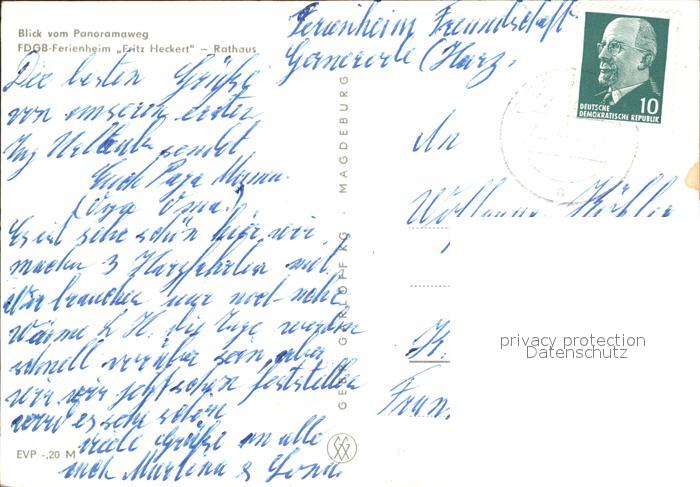 Blick vom Panoramaweg
FDGB-Ferienheim „Fritz Heckert" – Rathaus
Ferienheim Freundschaft
Gernrode (Harz.
DEUTSCHE
DEMOKRATISCHE REPUBLIK 10
Die besten Grüße
von unseren ersten
Tag Urlaub sendet
Euch Papa Mama.
(Oma Opa.)
Es ist sehr schön hier wir
machen 3 Harzfahrten mit.
Wir brauchen nur noch mehr
Wärme die Tage werden
schnell vorüber sein, aber
wir jetzt schon feststellen
es sehr schön
viele Grüße an alle
auch Martina &
An
K.
Fran.
EVP -,20 M
GEBR. GARLOFF KG · MAGDEBURG
privacy protection
Datenschutz